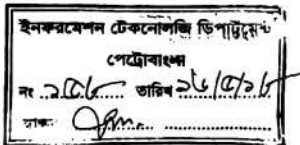 ইনফরমেশন টেকনোলজি ডিপার্টমেন্ট
পেট্রোবাংলা
নং ২৫৮ তারিখ ১৬/৫/১৮